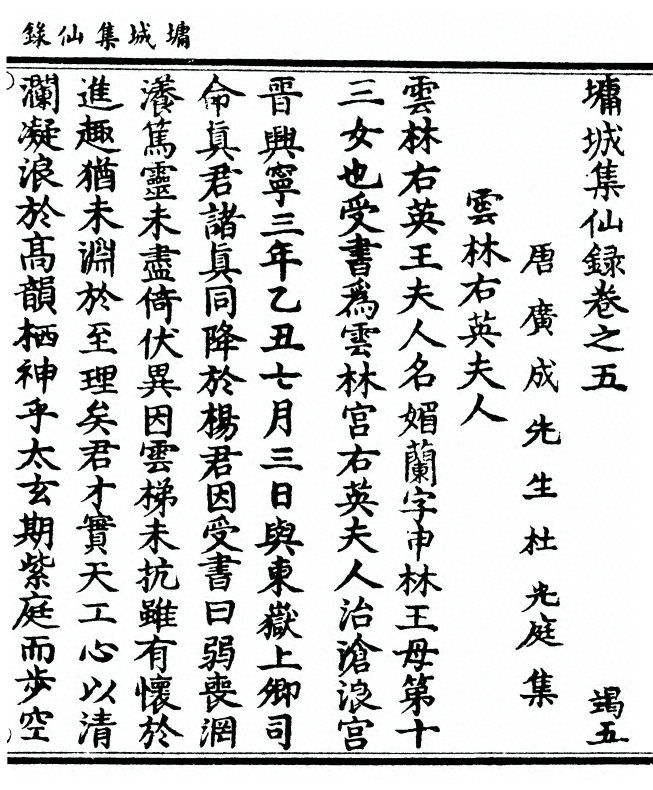 墉城集仙錄
墉城集仙録卷之五
竭五
唐廣成先生杜光庭集
雲林右英夫人
雲林右英王夫人名媚蘭字申林王母第十
三女也受書爲雲林宮右英夫人治滄浪宮
晉興寧三年乙丑七月三日與東嶽上卿司
命眞君諸眞同降於楊君因受書曰弱喪㓁
瀁篤靈未盡倚伏異因雲梯未抗雖有懷於
進趣猶未淵於至理矣君才實天工心以清
瀾凝浪於高韻栖神乎太玄期紫庭而步空